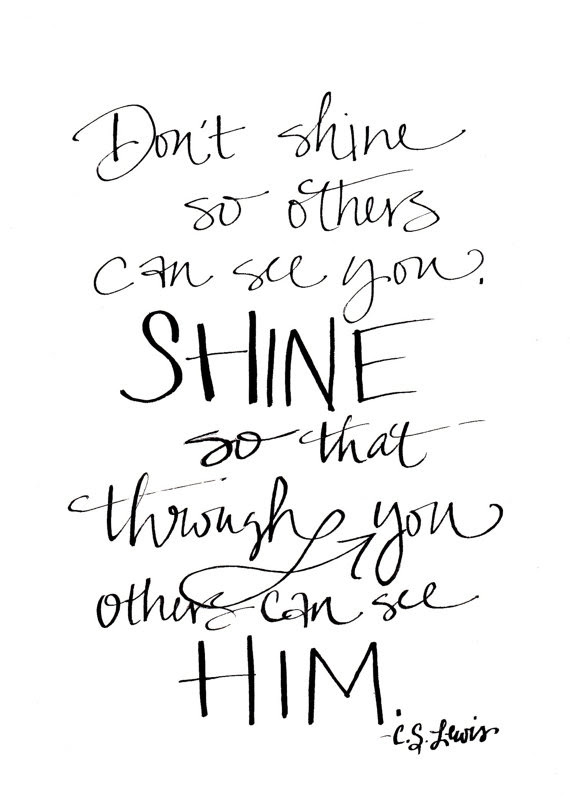 Don't shine
so others
can see you.
SHINE
so that
through you
others can see
HIM.
-C.S. Lewis